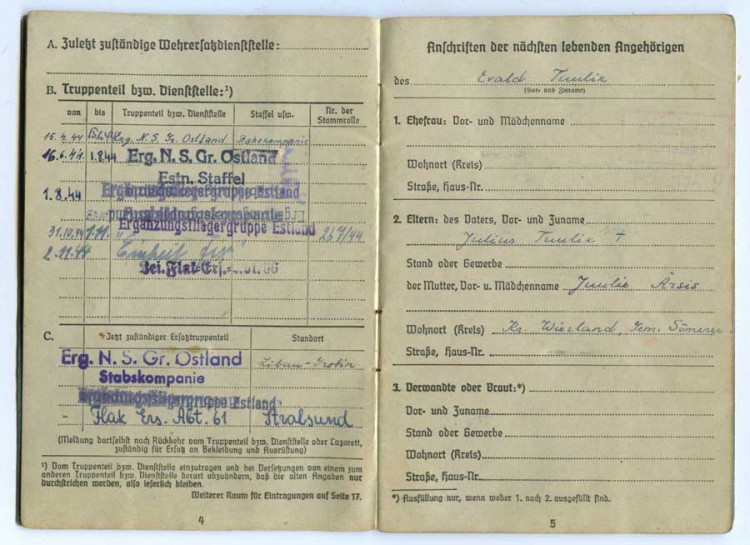 A. Zuletzt zuständige Wehrersatzdienststelle:
B. Truppenteil bzw. Dienststelle:¹)
von bis Truppenteil bzw. Dienststelle Staffel usw. Nr. der Stammrolle
15.4.44 Erg. N. S. Gr. Ostland Stabskompanie
16.6.44 1.8.44 Erg. N. S. Gr. Ostland
Estn. Staffel
1.8.44 Ergänzungsfliegergruppe Estland
31.10.44 Ergänzungsfliegergruppe Estland 267/44
2.11.44
C. Jetzt zuständiger Ersatztruppenteil Standort
Erg. N. S. Gr. Ostland Libau-Grobin
Stabskompanie
Ergänzungsfliegergruppe Estland
- Flak Ers. Abt. 61 Stralsund
(Meldung dortselbst nach Rückkehr vom Truppenteil bzw. Dienststelle oder Lazarett,
zuständig für Ersatz an Bekleidung und Ausrüstung)
¹) Vom Truppenteil bzw. Dienststelle einzutragen und bei Versetzungen von einem zum
anderen Truppenteil bzw. Dienststelle derart abzuändern, daß die alten Angaben nur
durchstrichen werden, also leserlich bleiben.
Weiterer Raum für Eintragungen auf Seite 17.
4
Anschriften der nächsten lebenden Angehörigen
des Evald
(Vor- und Zuname)
1. Ehefrau: Vor- und Mädchenname
Wohnort (Kreis)
Straße, Haus-Nr.
2. Eltern: des Vaters, Vor- und Zuname
Julius +
Stand oder Gewerbe
der Mutter, Vor- u. Mädchenname
Wohnort (Kreis) Kr. Wierland, Gem.
Straße, Haus-Nr.
3. Verwandte oder Braut:*)
Vor- und Zuname
Stand oder Gewerbe
Wohnort (Kreis)
Straße, Haus-Nr.
*) Ausfüllung nur, wenn weder 1. noch 2. ausgefüllt sind.
5